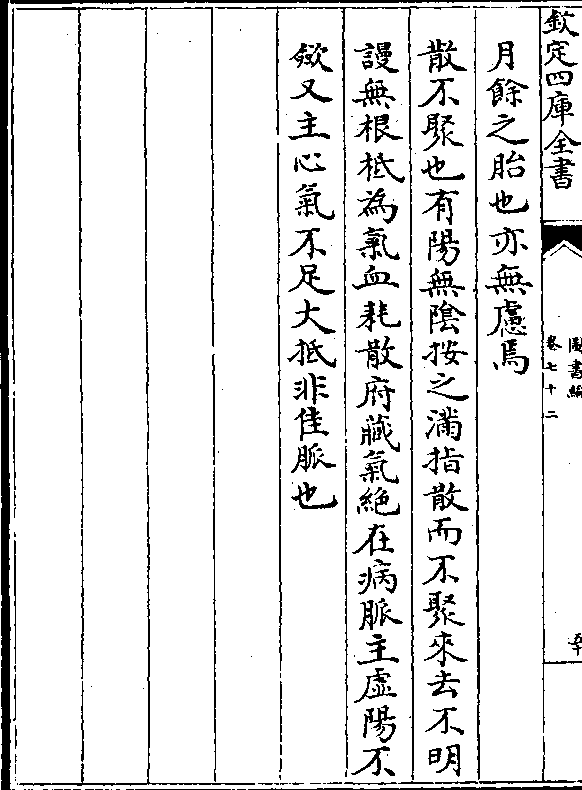 欽定四庫全書
圖書編
卷七十二
月餘之胎也亦無慮焉
散不聚也有陽無陰按之滿指散而不聚來去不明
謾無根柢為氣血耗散府藏氣絶在病脈主虛陽不
歛又主心氣不足大抵非佳脈也